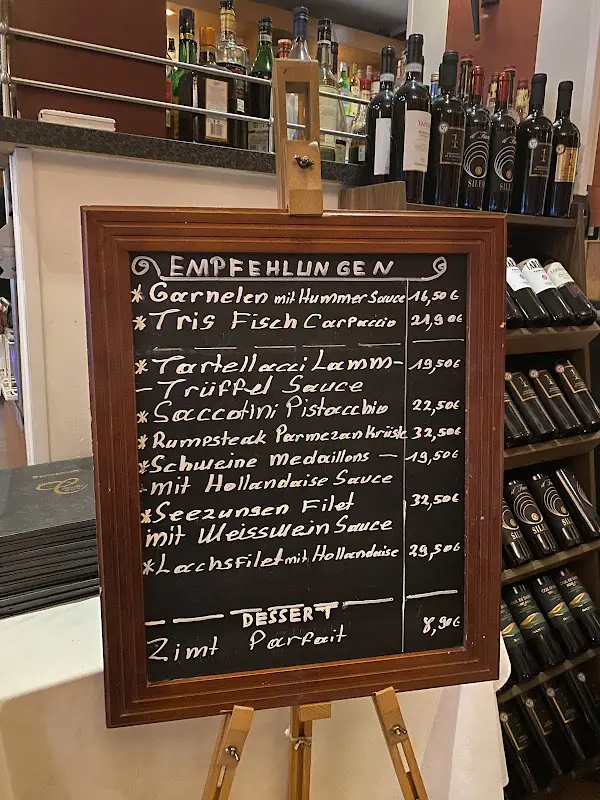 EMPFEHLUNGEN
*Garnelen mit Hummer Sauce 16,50€
*Tris Fisch Carpaccio 21,90€
*Tartellacci Lamm- 19,50€
-Trüffel Sauce
*Saccotini Pistacchio 22,50€
*Rumpsteak Parmezan Krüste 32,50€
*Schweine Medaillons - 19,50€
-mit Hollandaise Sauce
*Seezungen Filet 32,50€
mit Weisswein Sauce
*Lachsfilet mit Hollandaise 29,50€
DESSERT
Zimt Parfait 8,90€